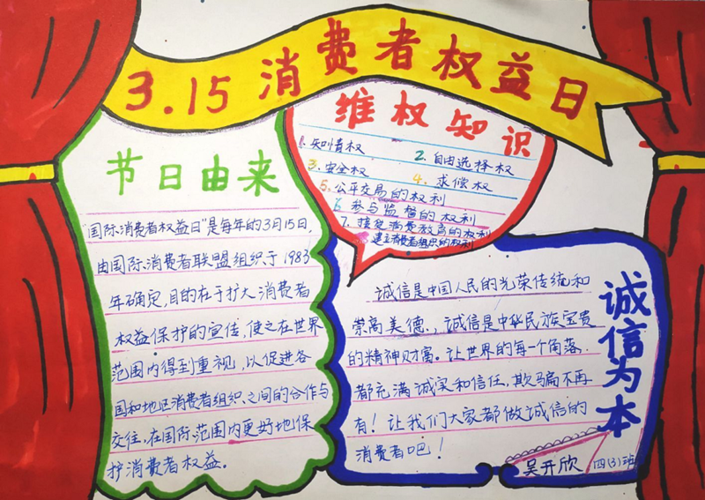 3.15消费者权益日
节日由来
"国际消费者权益日"是每年的3月15日,
由国际消费者联盟组织于1983
年确定,目的在于扩大消费者
权益保护的宣传,使之在世界
范围内得到重视,以促进各
国和地区消费者组织之间的合作与
交往,在国际范围内更好地保
护消费者权益。
维权知识
1.知情权
2.自由选择权
3.安全权
4.求偿权
5.公平交易的权利
6.参与监督的权利
7.接受消费教育的权利
8建立消费者组织的权利
诚信为本
诚信是中国人民的光荣传统和
崇高美德.,诚信是中华民族宝贵
的精神财富。让世界的每一个角落.
都充满诚实和信任,欺骗不再
有!让我们大家都做诚信的
消费者吧!
吴开欣 四(3)班